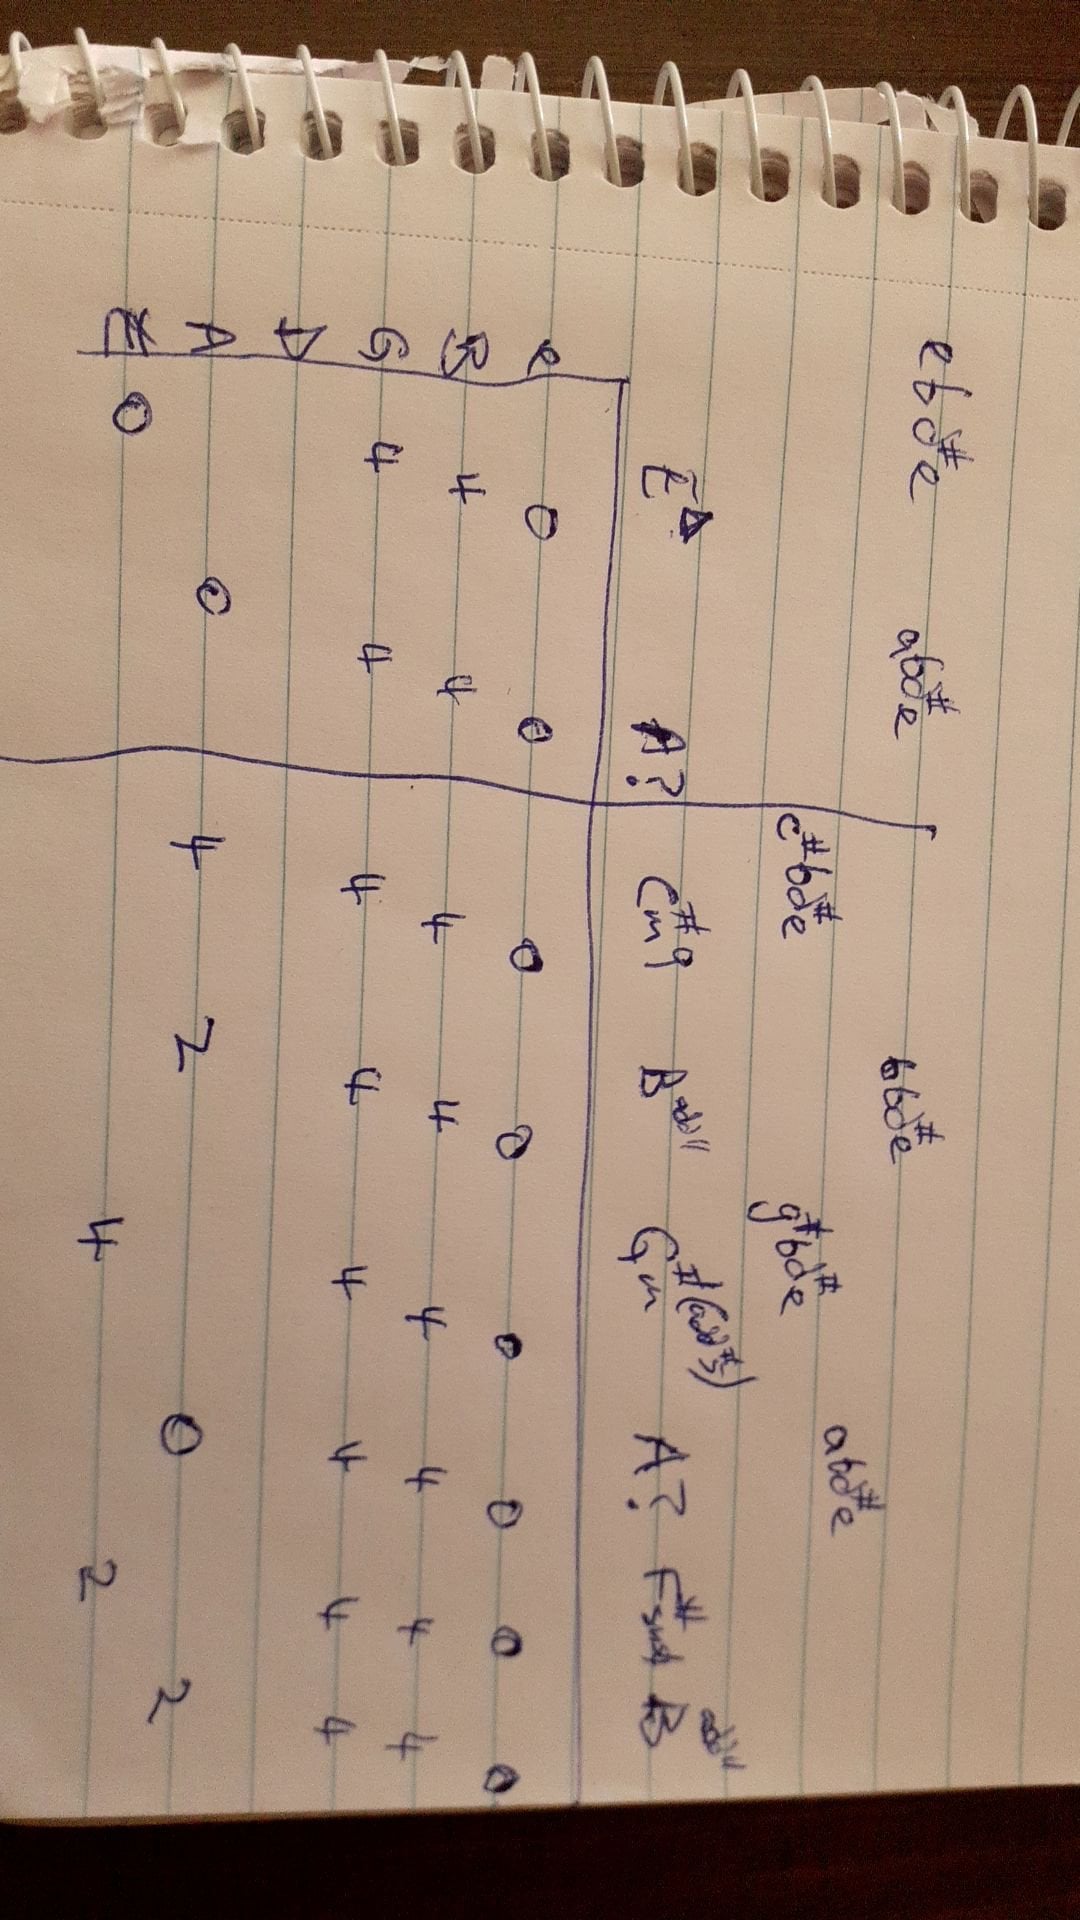 ebd#e abd#e c#bd#e bbd#e g#bd#e abd#e
E△ A? C#m9 Badd11 G#m(add#5) A? F# B add11
e 0 0 0 0 0 0 0 0
B 4 4 4 4 4 4 4 4
G 4 4 4 4 4 4 4 4
D
A 0 4 2 0 2
E 0 4 2